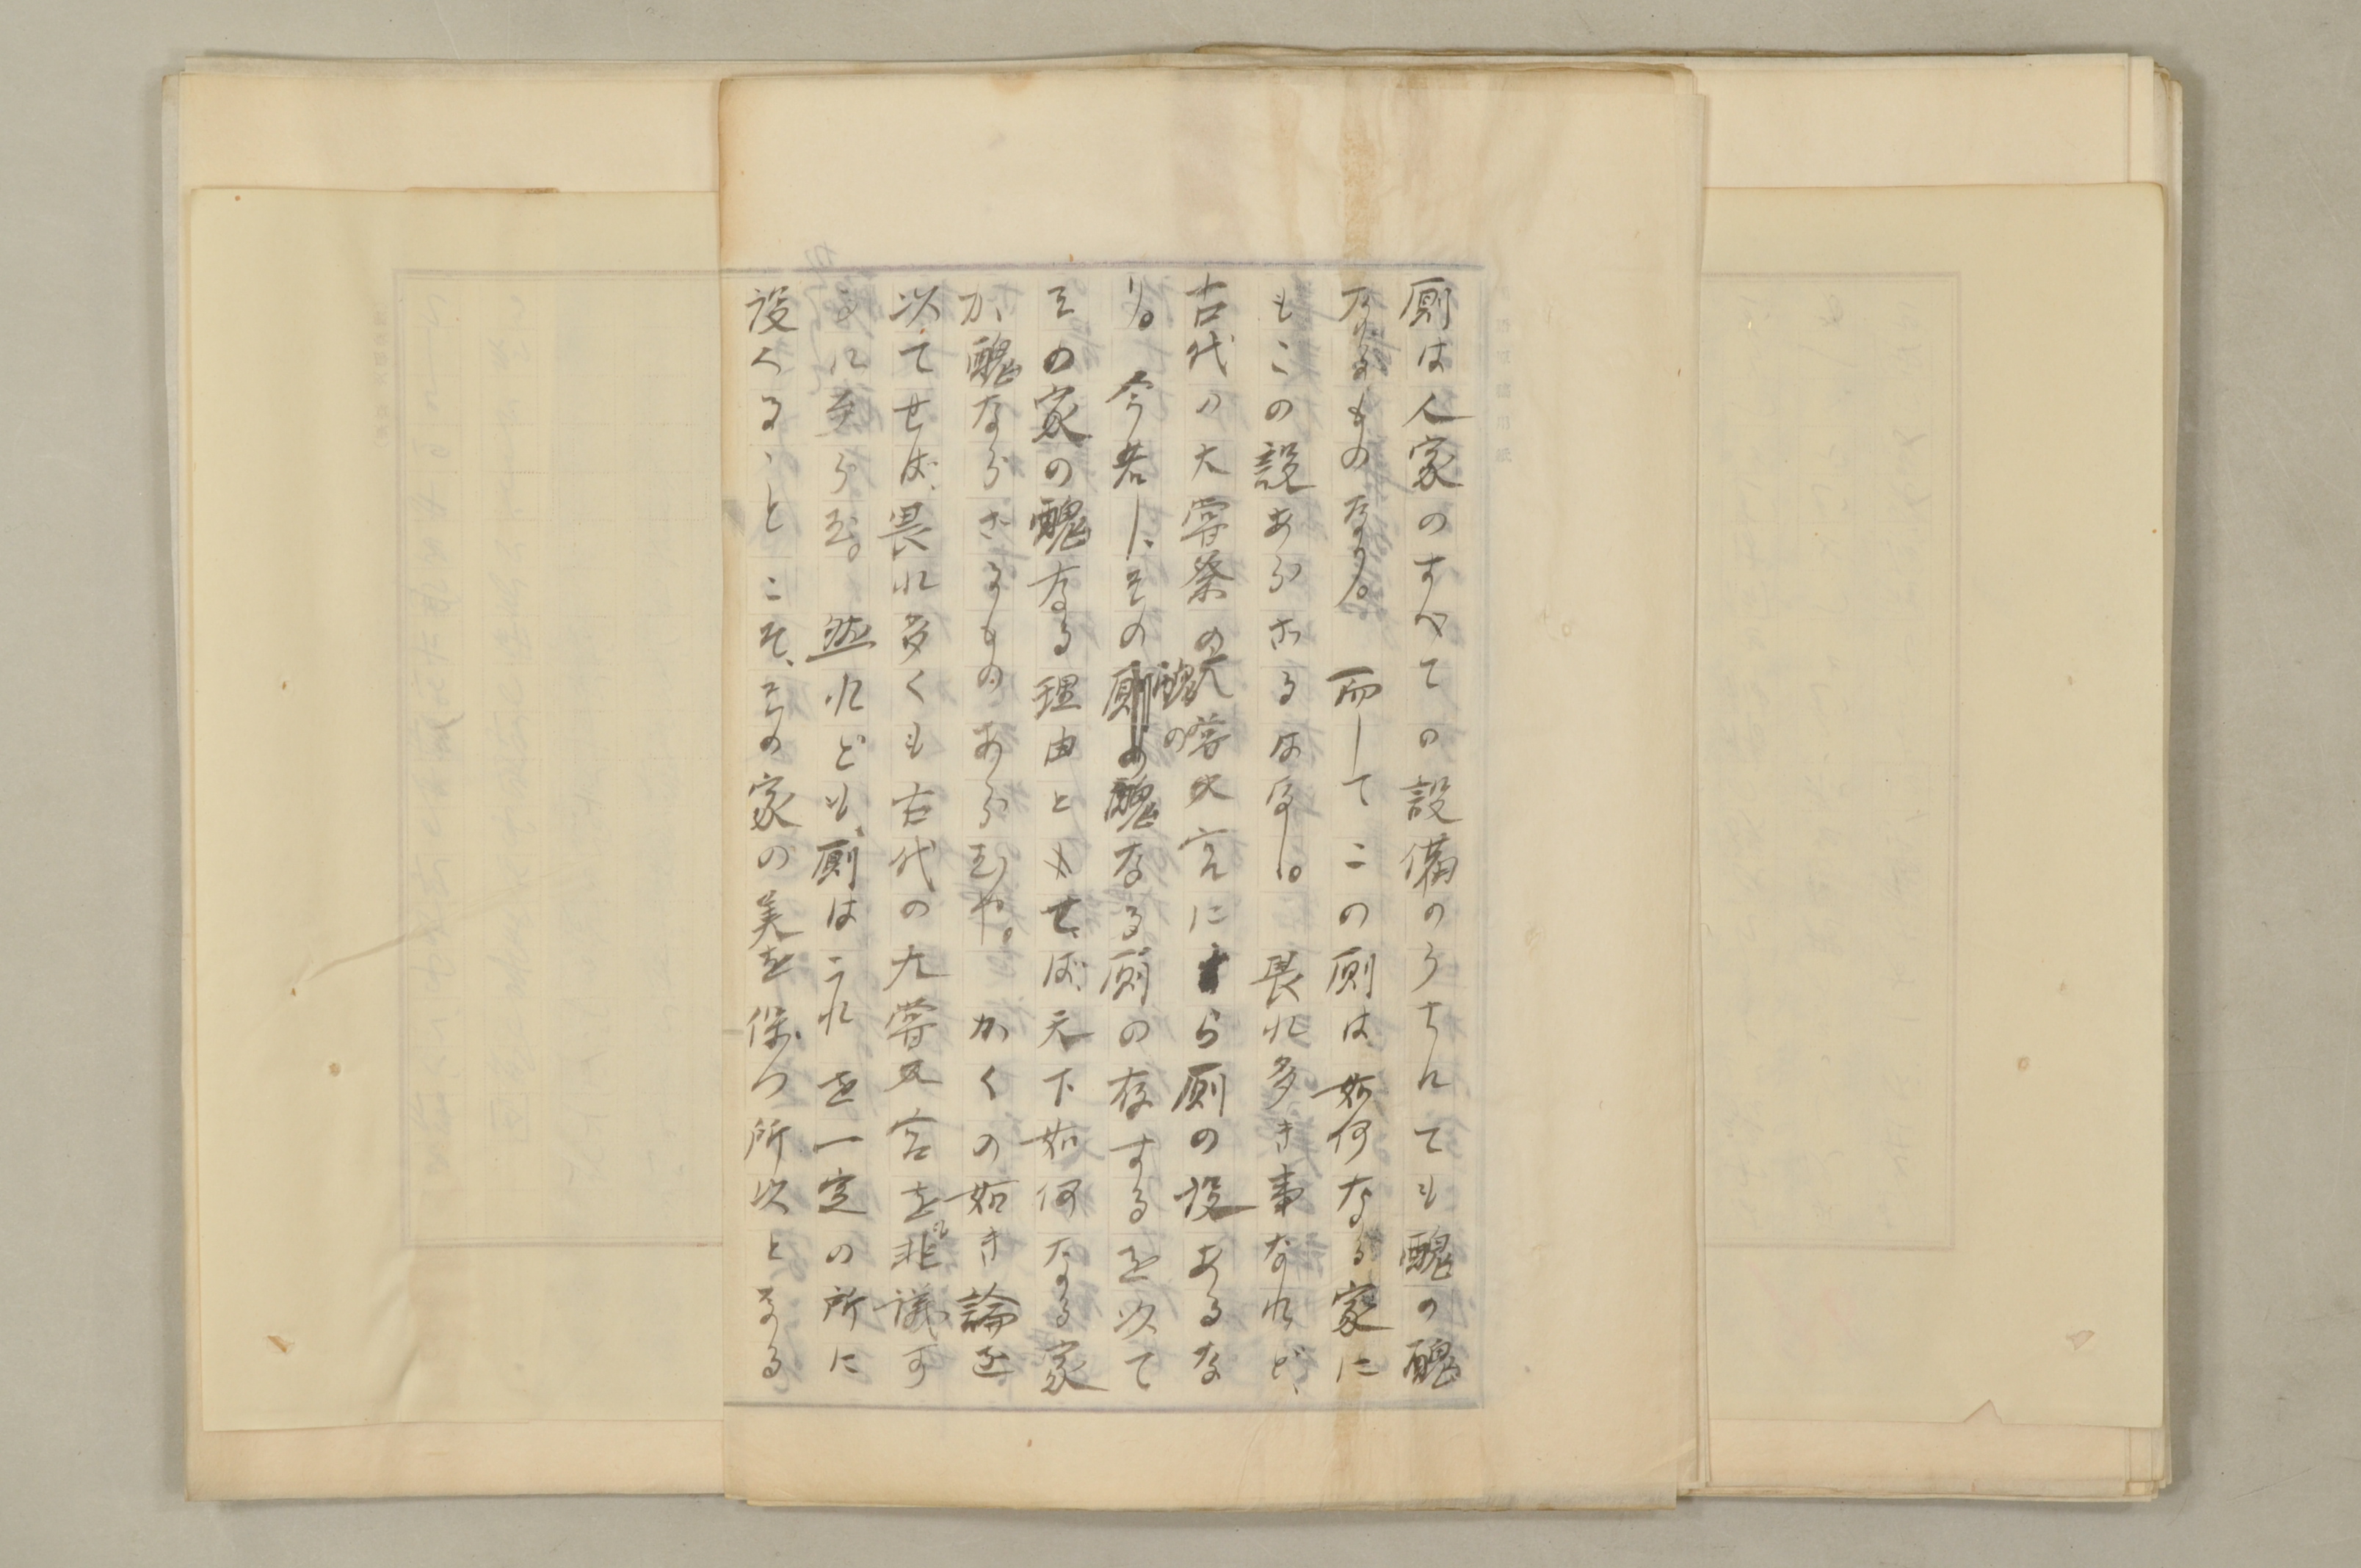 厠は人家のすべての設備のうちにても醜の醜
なるものなり。而してこの厠は如何なる家に
もこの設あらざるは無し。畏れ多き事なれど、
古代の大嘗祭の大嘗宮にすら厠の設あるな
り。今若し、その醜の醜なる厠の存するを以て
その家の醜なる理由とせば、天下如何なる家
か、醜ならざるものあらむや。かくの如き論を
以てせば、畏れ多くも古代の大嘗宮を非議す
るに至らむ。然れども、厠はこれを一定の所に
設くるこそ、その家の美を保つ所以となる